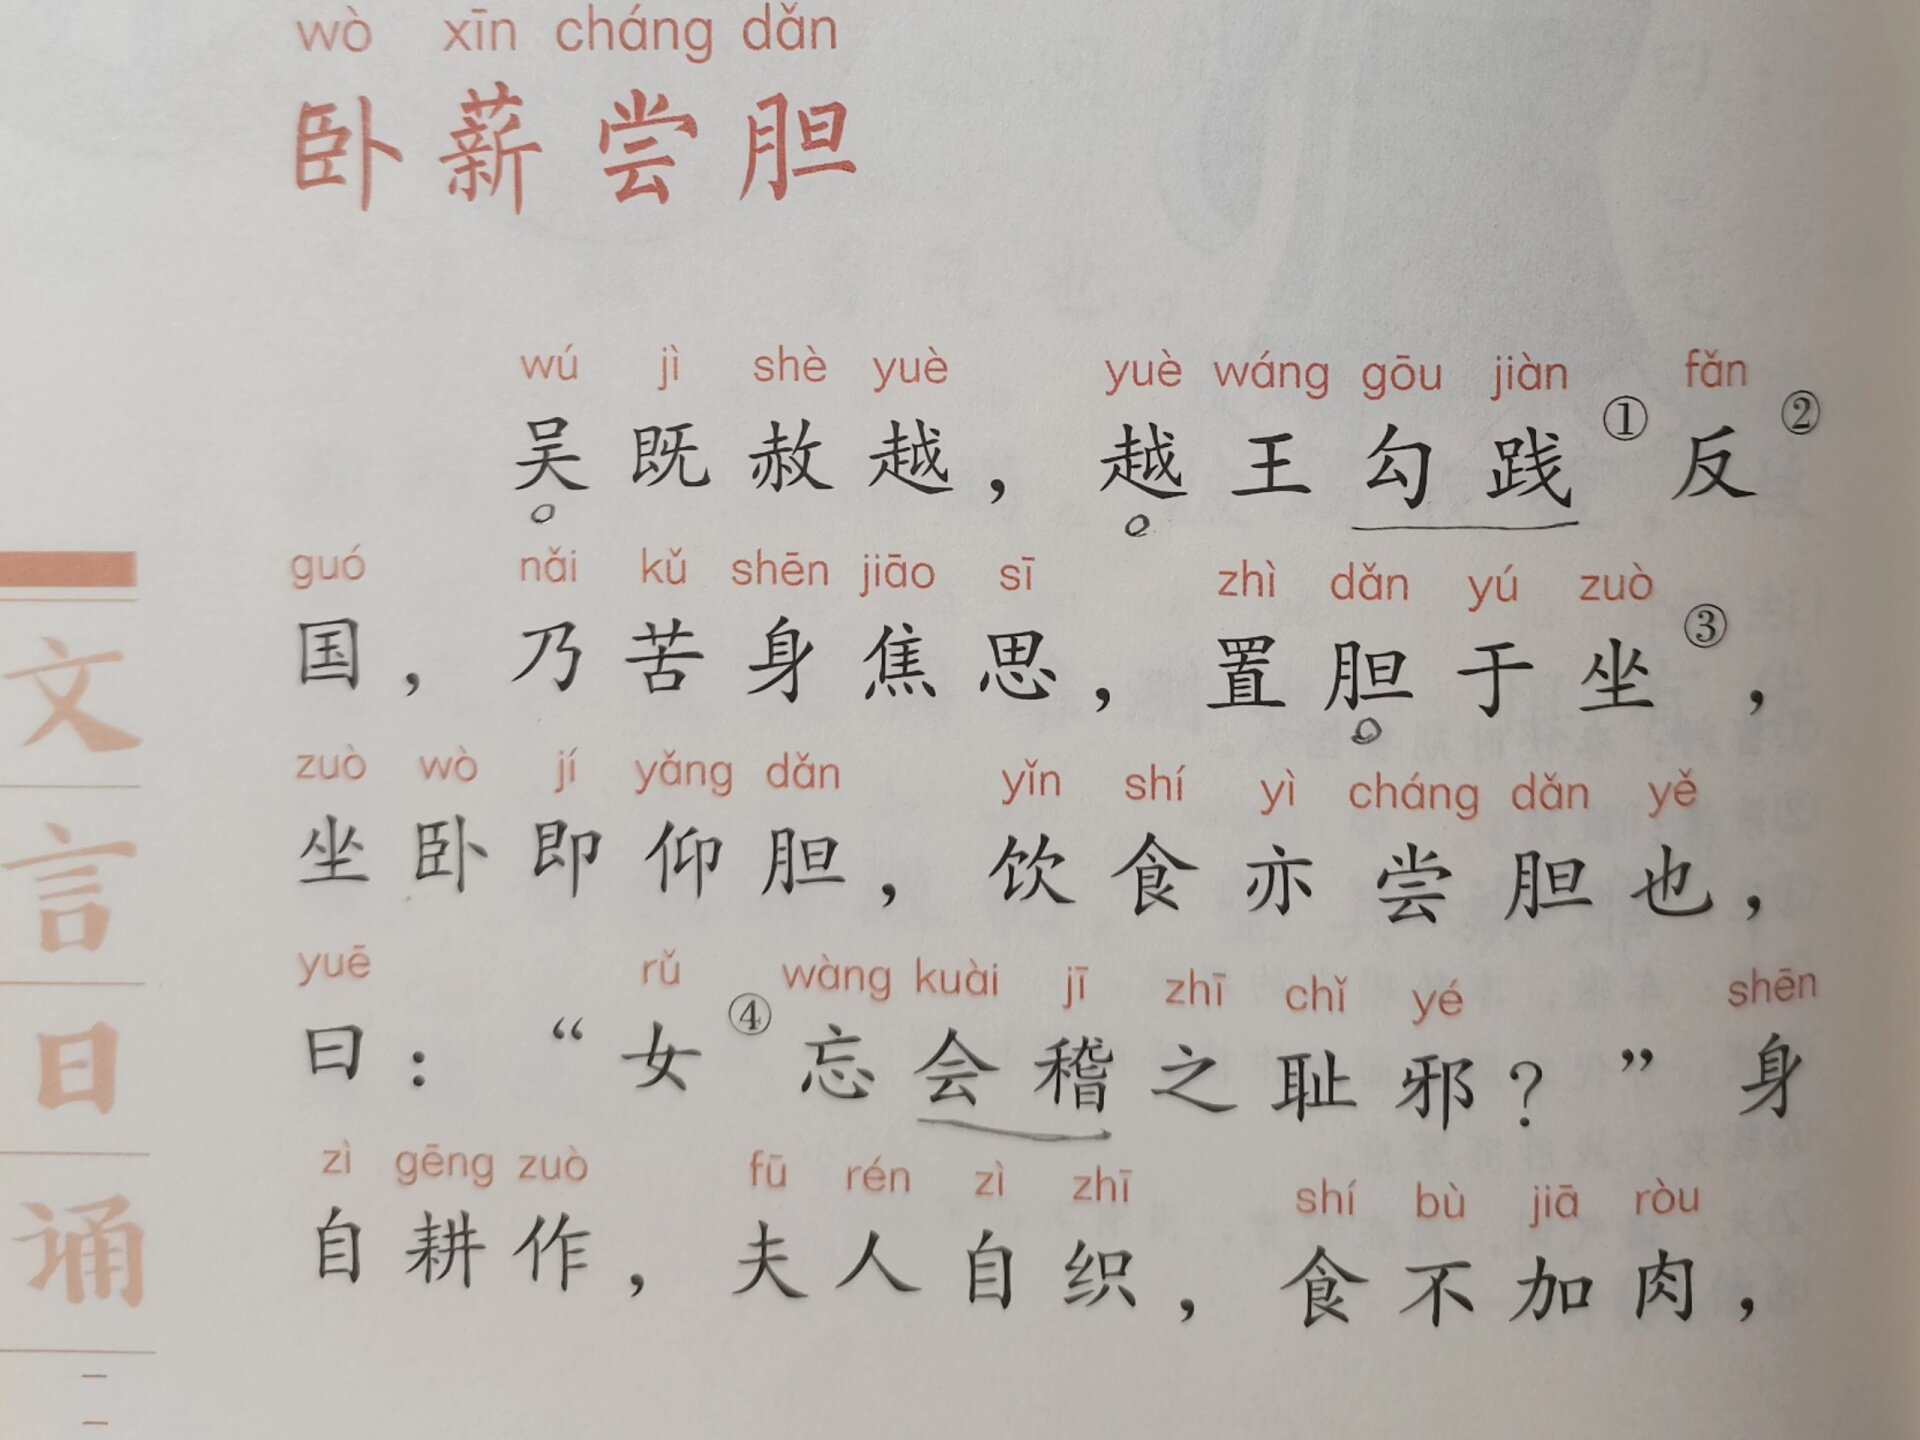 wò xīn cháng dǎn
卧薪尝胆
wú jì shè yuè yuè wáng gōu jiàn fǎn
吴既赦越，越王勾践①反②
guó nǎi kǔ shēn jiāo sī zhì dǎn yú zuò
国，乃苦身焦思，置胆于坐③，
zuò wò jí yǎng dǎn yǐn shí yì cháng dǎn yě
坐卧即仰胆，饮食亦尝胆也，
yuē rǔ wàng kuài jī zhī chǐ yé shēn
曰：“女④忘会稽之耻邪？”身
zì gēng zuò fū rén zì zhī shí bù jiā ròu
自耕作，夫人自织，食不加肉，
文言日诵
二